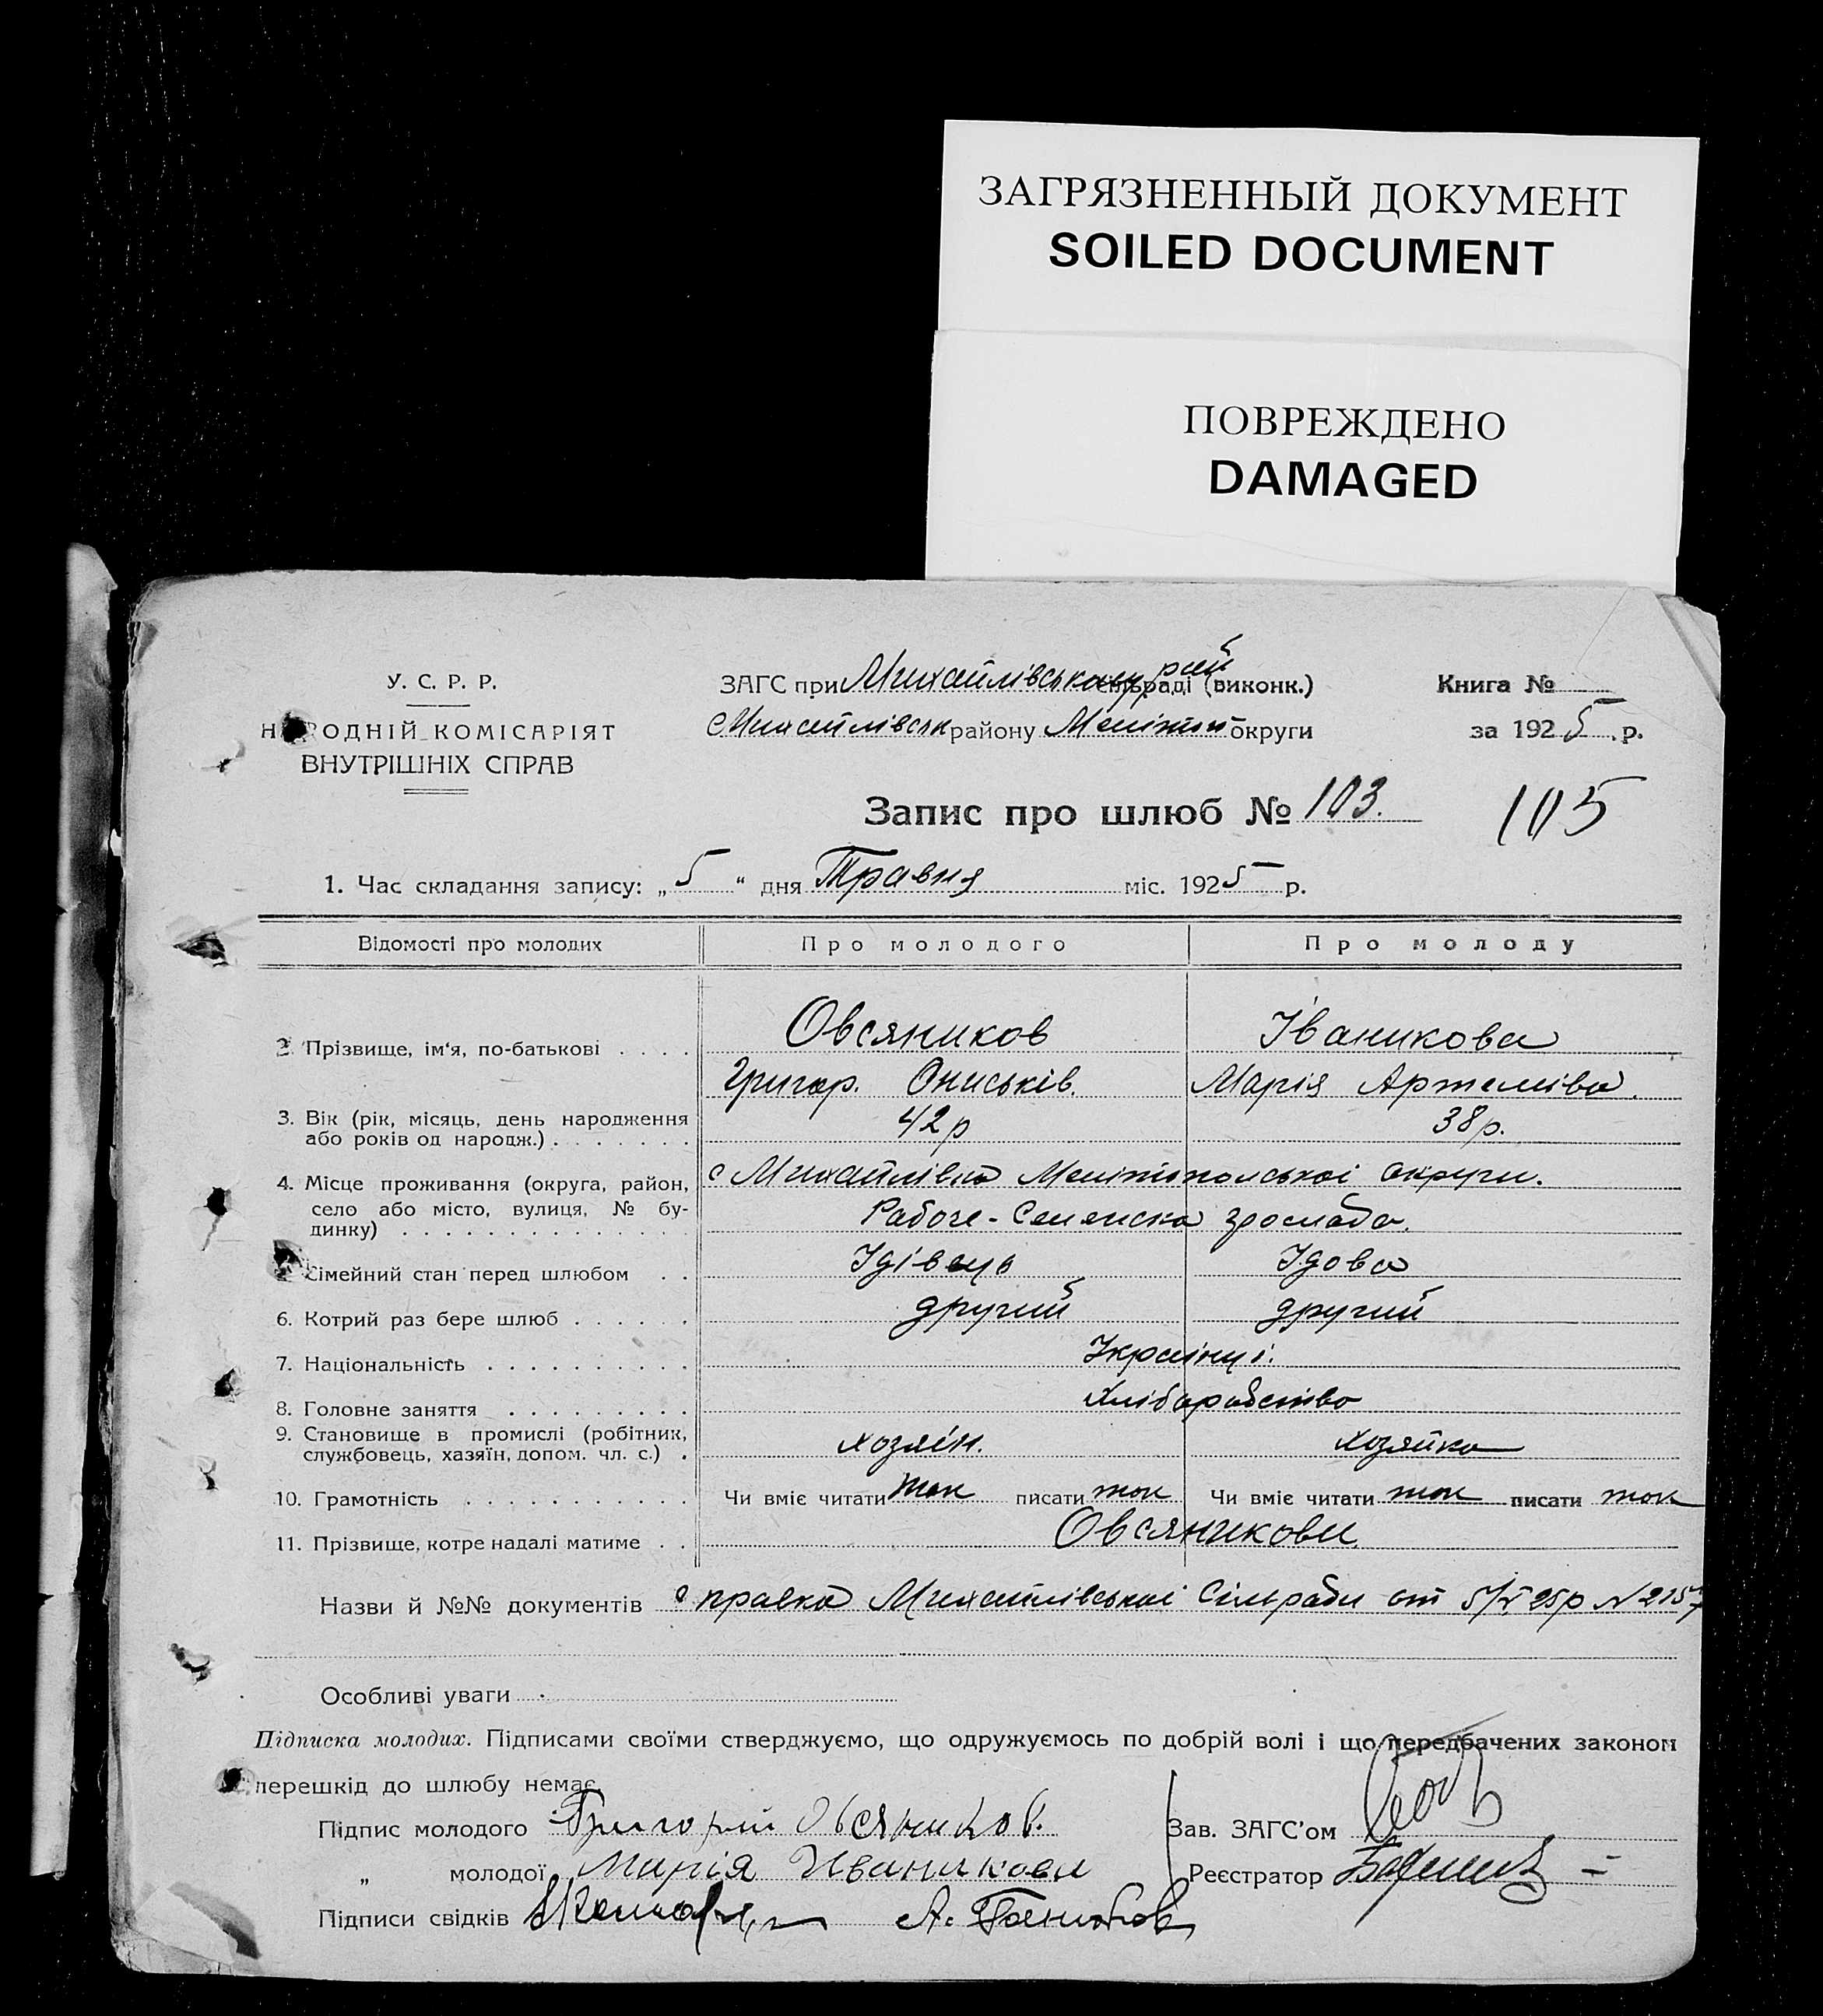 ЗАГРЯЗНЕННЫЙ ДОКУМЕНТ
SOILED DOCUMENT
ПОВРЕЖДЕНО
DAMAGED
У. С. Р. Р.
НАРОДНІЙ КОМІСАРІЯТ
ВНУТРІШНІХ СПРАВ
ЗАГС при Михайлівському рай сільраді (виконк.)
Михайлівськ району Меліт округи
Книга №
за 1925 р.
Запис про шлюб № 103.
105
1. Час складання запису: „ 5 “ дня Травня міс. 1925 р.
Відомості про молодих Про молодого Про молоду
2. Прізвище, ім‘я, по-батькові . . . . Овсяников Іваникова
Григор. Ониськів. Марія Артемівa.
3. Вік (рік, місяць, день народження
або років од народж.) . . . . . . . 42 р 38 р.
4. Місце проживання (округа, район, с Михайлівка Мелітопольської округи.
село або місто, вулиця, № бу-
динку) . . . . . . . . . . . . . . . Рабоче-
Сімейний стан перед шлюбом . . Удівець Удова
6. Котрий раз бере шлюб . . . . . . другий другий
7. Національність . . . . . . . . . . Українці.
8. Головне заняття . . . . . . . . . Хліборобство
9. Становище в промислі (робітник,
службовець, хазяїн, допом. чл. с.) . хозяїн. хозяйка
10. Грамотність . . . . . . . . . . . Чи вміє читати так писати так Чи вміє читати так писати так
11. Прізвище, котре надалі матиме . . Овсяникови
Назви й №№ документів справка Михайлівської Сільради от 5/V 25р N 2157
Особливі уваги
Підписка молодих. Підписами своїми стверджуємо, що одружуємось по добрій волі і що передбачених законом
перешкід до шлюбу немає.
Підпис молодого Григорий Овсяников.
„ молодої Мария Иваникова
Підписи свідків
Зав. ЗАГС’ом
Реєстратор